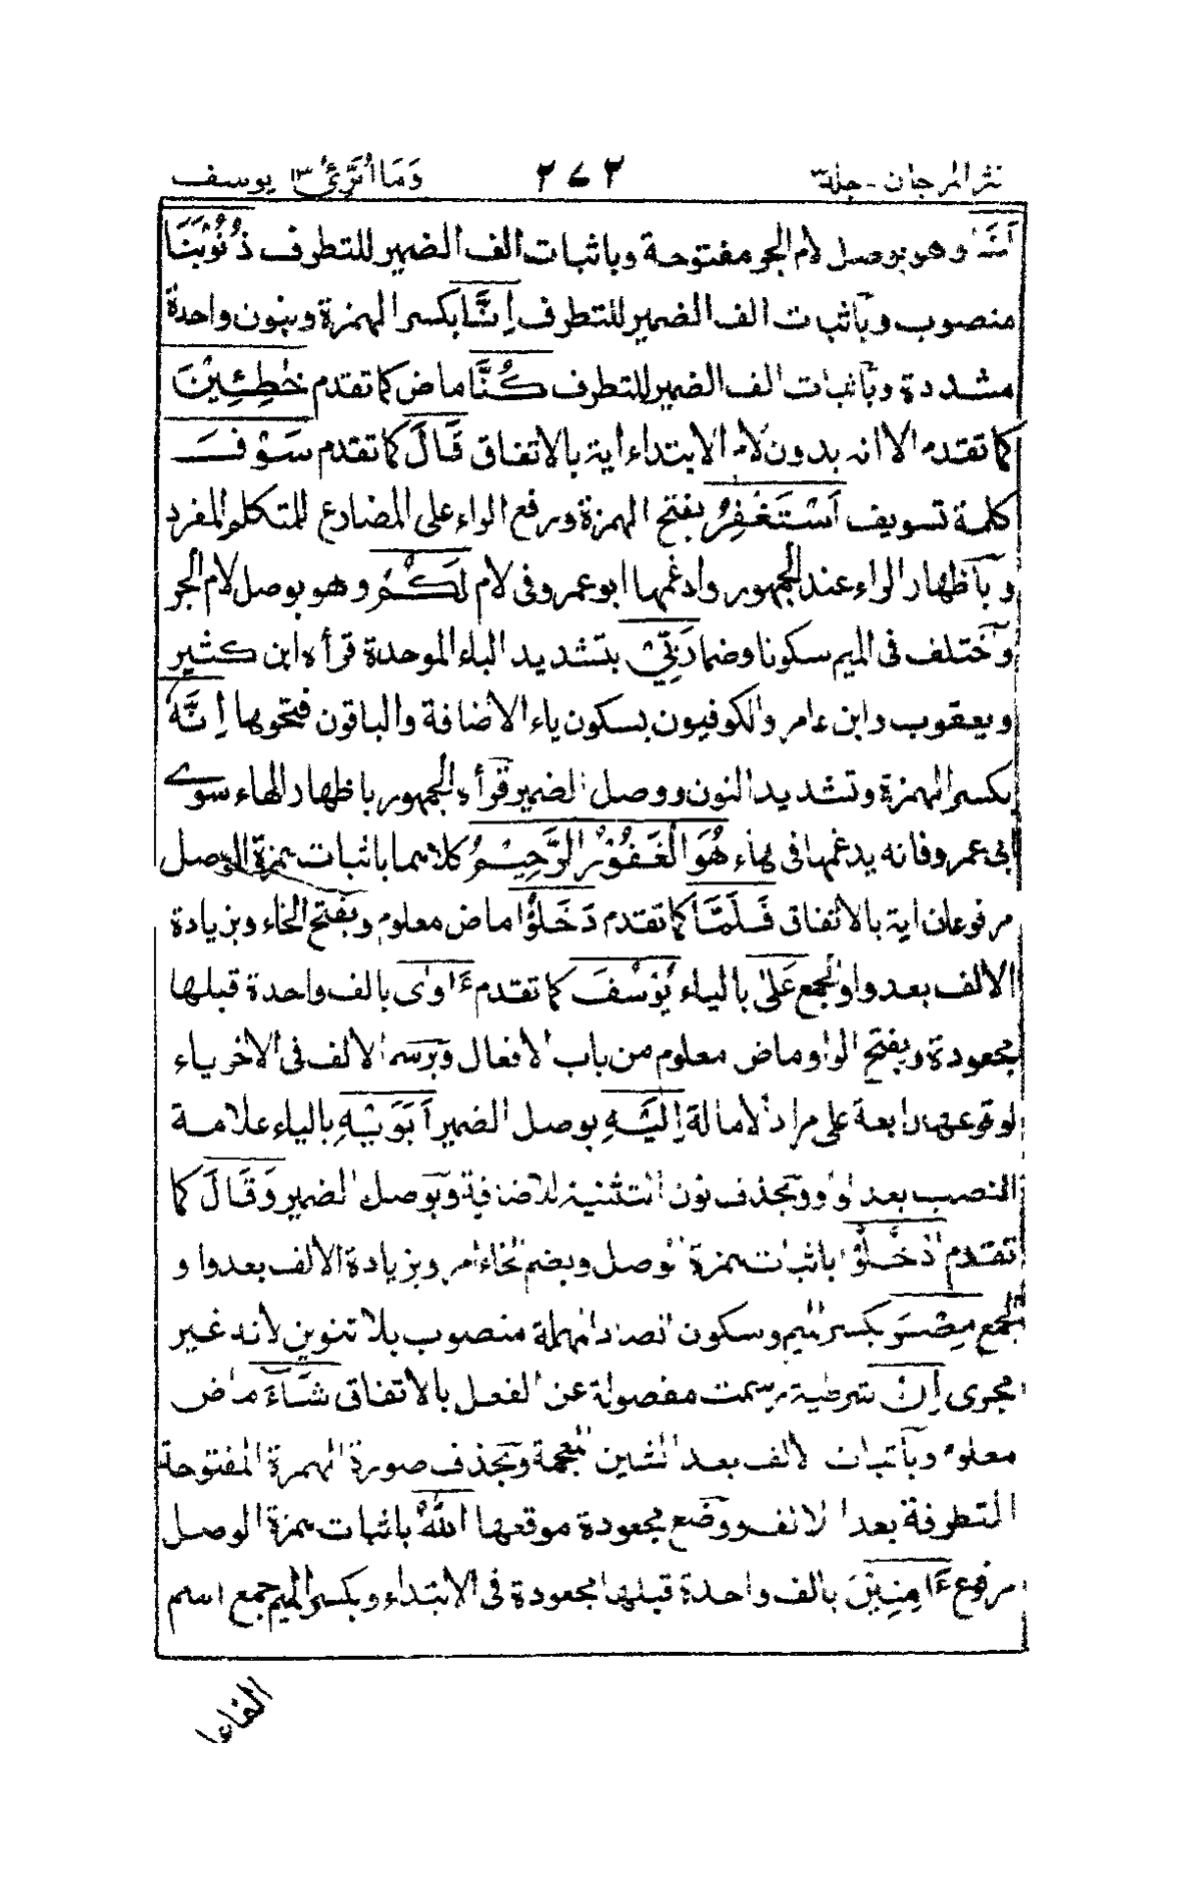 نثر المرجان - جلد ٣ ٢٧٢ وَمَا أُبَرِّئُ ١٣ يوسف
لَنَا وهو بوصل لام الجر مفتوحة وباثبات الف الضمير للتطرف ذُنُوْبَنَا
منصوب وبآثبات الف الضمير للتطرف اِنَّا بكسر الهمزة وبنون واحدة
مشددة وبآثبات الف الضمير للتطرف كُنَّا ماض كما تقدم خٰطِئِيْنَ
كما تقدم الا انه بدون لام الابتداء اية بالاتفاق قَالَ كما تقدم سَوْفَ
كلمة تسويف اَسْتَغْفِرُ بفتح الهمزة ورفع الراء على المضارع للمتكلم المفرد
وبآظهار الراء عند الجمهور وادغمها ابو عمرو فى لام لَكُمْ وهو بوصل لام الجر
وآختلف فى الميم سكونا وضما رَبِّيْ بتشديد الباء الموحدة قرأه ابن كثير
ويعقوب وابن عامر والكوفيون بسكون ياء الاضافة والباقون فتحوها اِنَّهٗ
بكسر الهمزة وتشديد النون ووصل الضمير قرأه الجمهور باظهار الهاء سوے
ابى عمرو فانه يدغمها فى هاء هُوَ الْغَفُوْرُ الرَّحِيْمُ كلاهما باثبات همزة الوصل
مرفوعان اية بالاتفاق فَلَمَّا كما تقدم دَخَلُوْا ماض معلوم وبفتح الخاء وبزيادة
الالف بعد واو الجمع عَلٰى بالياء يُوْسُفَ كما تقدم ءَاوٰى بالف واحدة قبلها
مجعودة وبفتح الواو ماض معلوم من باب الافعال وبرسم الالف فى الاخر ياء
لوقوعها رابعة على مراد الامالة اِلَيْهِ بوصل الضمير اَبَوَيْهِ بالياء علامة
النصب بعد الواو وبحذف نون التثنية للاضافة وبوصل الضمير وَقَالَ كما
تقدم ادْخُلُوْا باثبات همزة الوصل وبضم الخاء امر وبزيادة الالف بعد واو
الجمع مِصْرَ بكسر الميم وسكون الصاد المهملة منصوب بلا تنوين لانه غير
مجرى اِنْ شرطية رسمت مفصولة عن الفعل بالاتفاق شَآءَ ماض
معلوم وبآثبات الالف بعد الشين المعجمة وبحذف صورة الهمزة المفتوحة
المتطرفة بعد الالف ووضع مجعودة موقعها اللّٰهُ باثبات همزة الوصل
مرفوع ءَامِنِيْنَ بالف واحدة قبلها مجعودة فى الابتداء وبكسر الميم جمع اسم
الفاعل